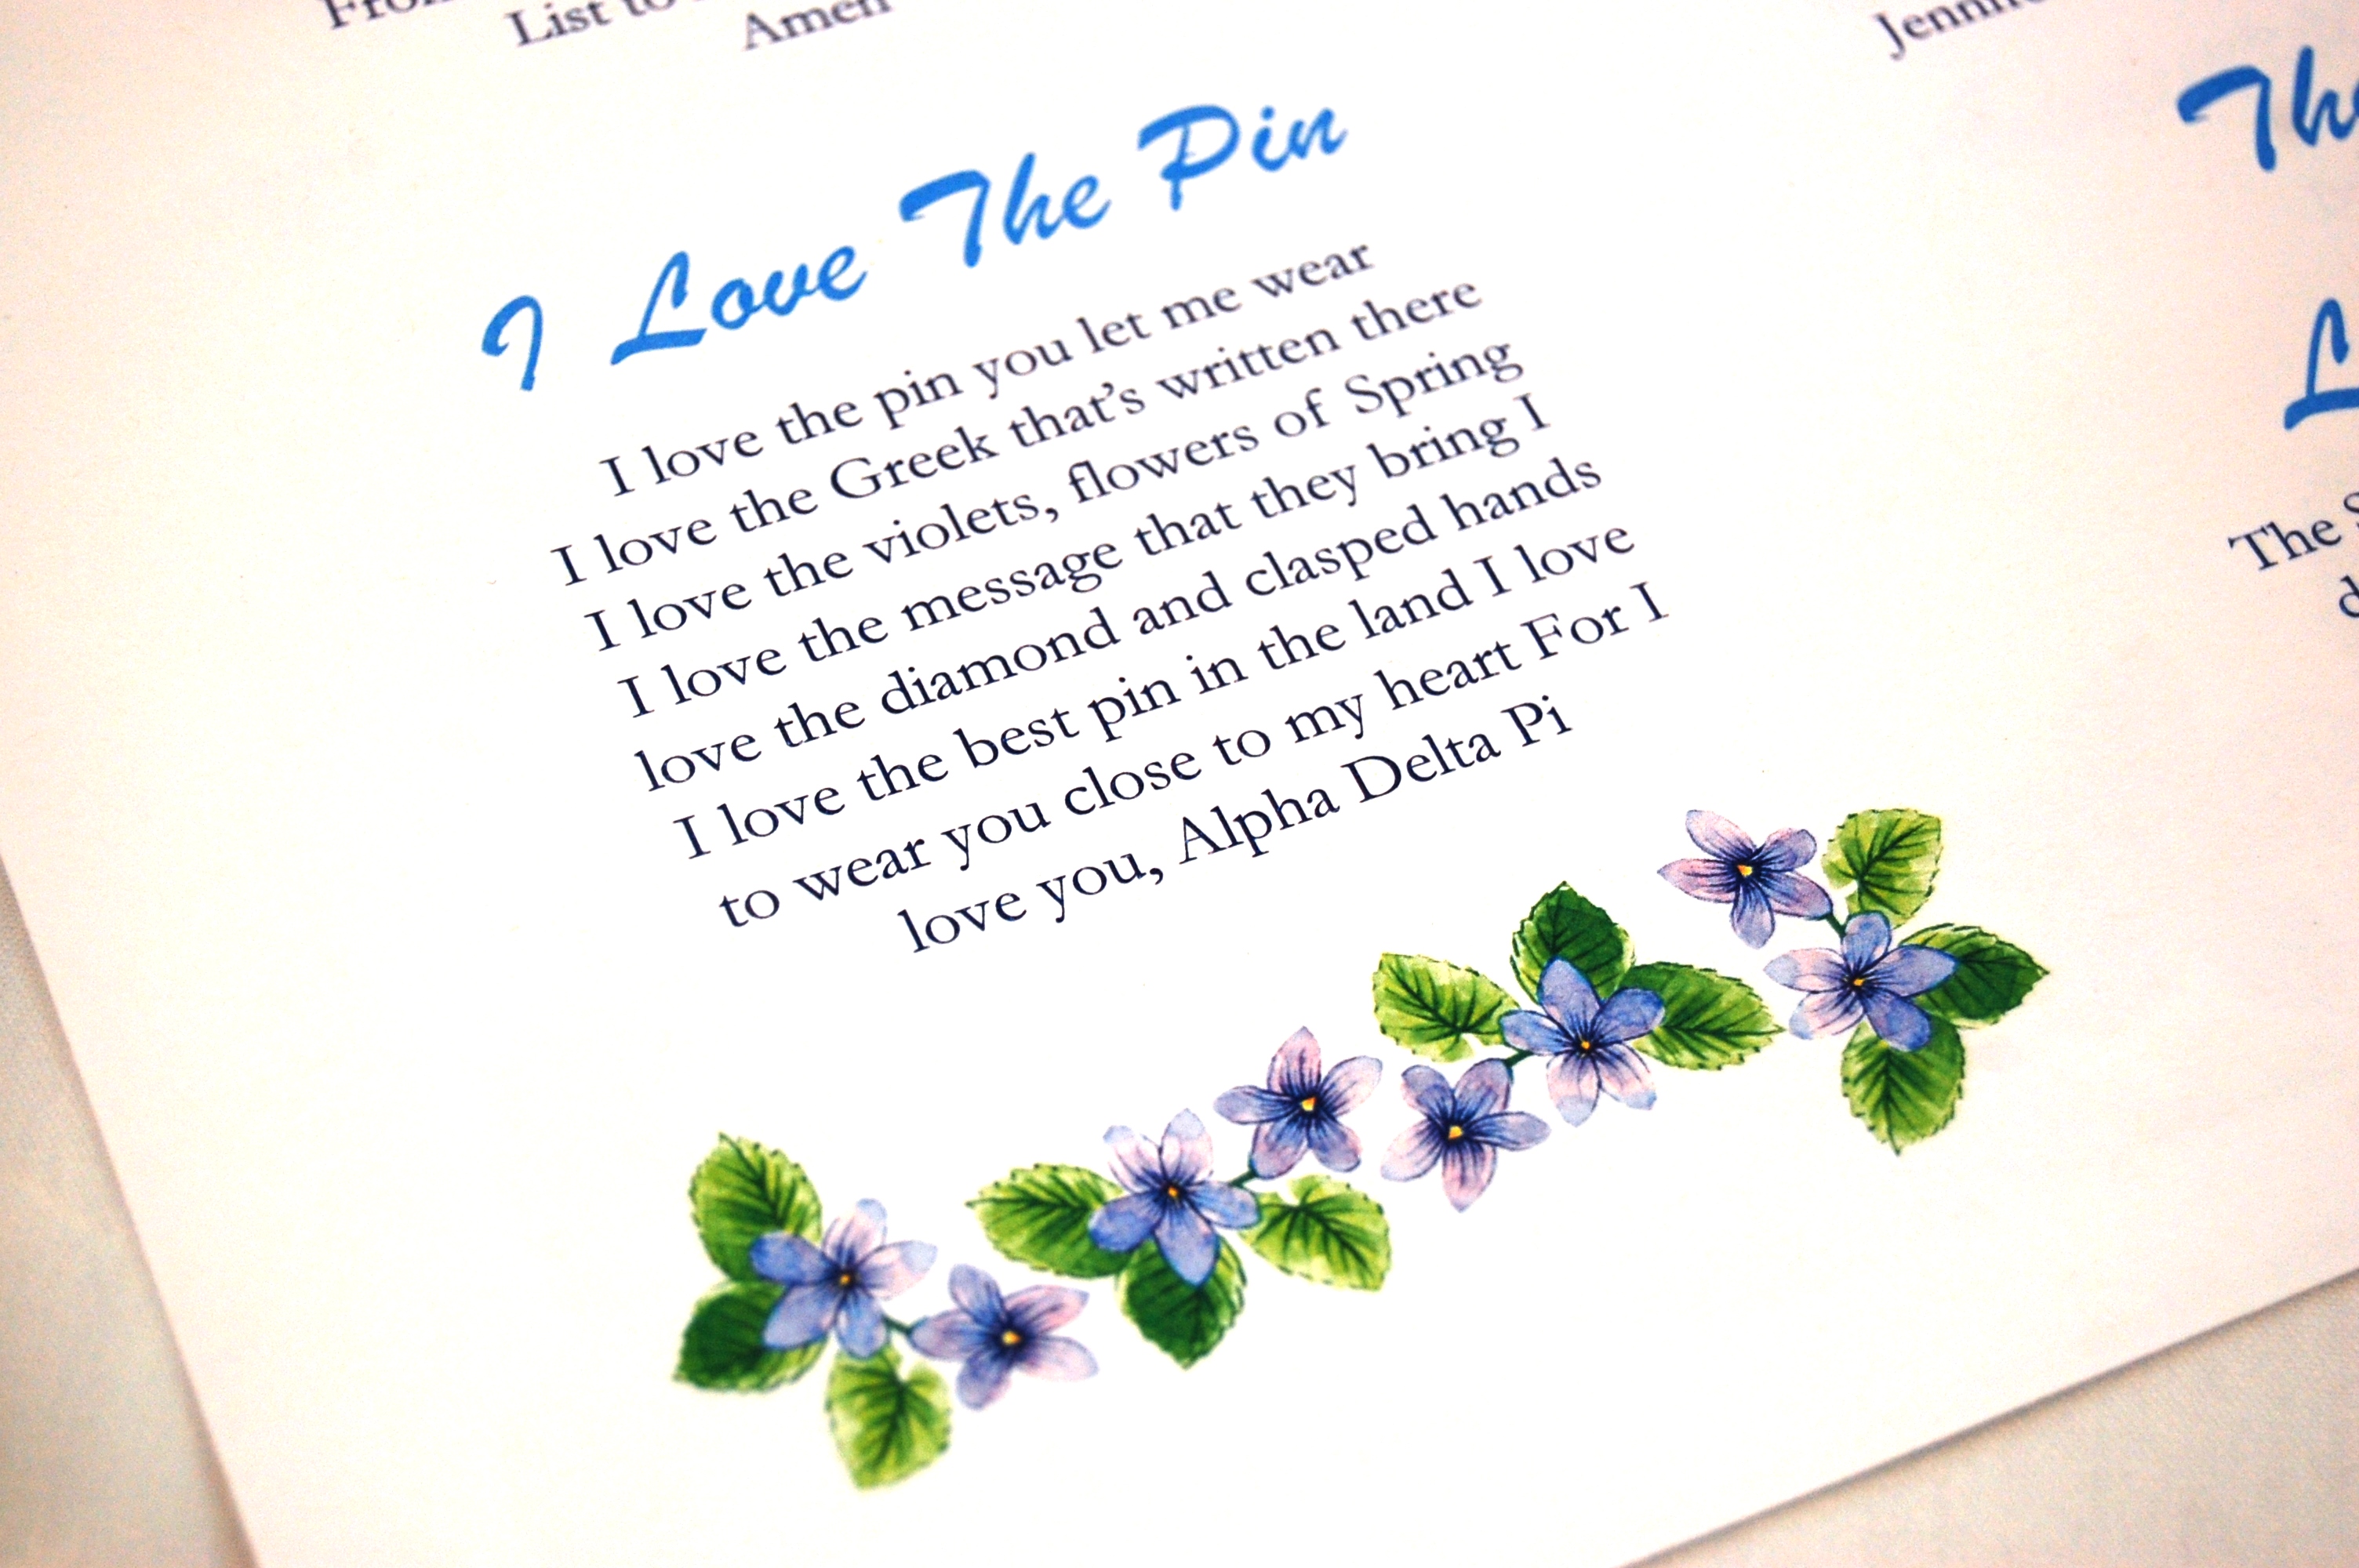 List to
Amen
I Love The Pin
I love the pin you let me wear
I love the Greek that's written there
I love the violets, flowers of Spring
I love the message that they bring I
love the diamond and clasped hands
I love the best pin in the land I love
to wear you close to my heart For I
love you, Alpha Delta Pi
The
The